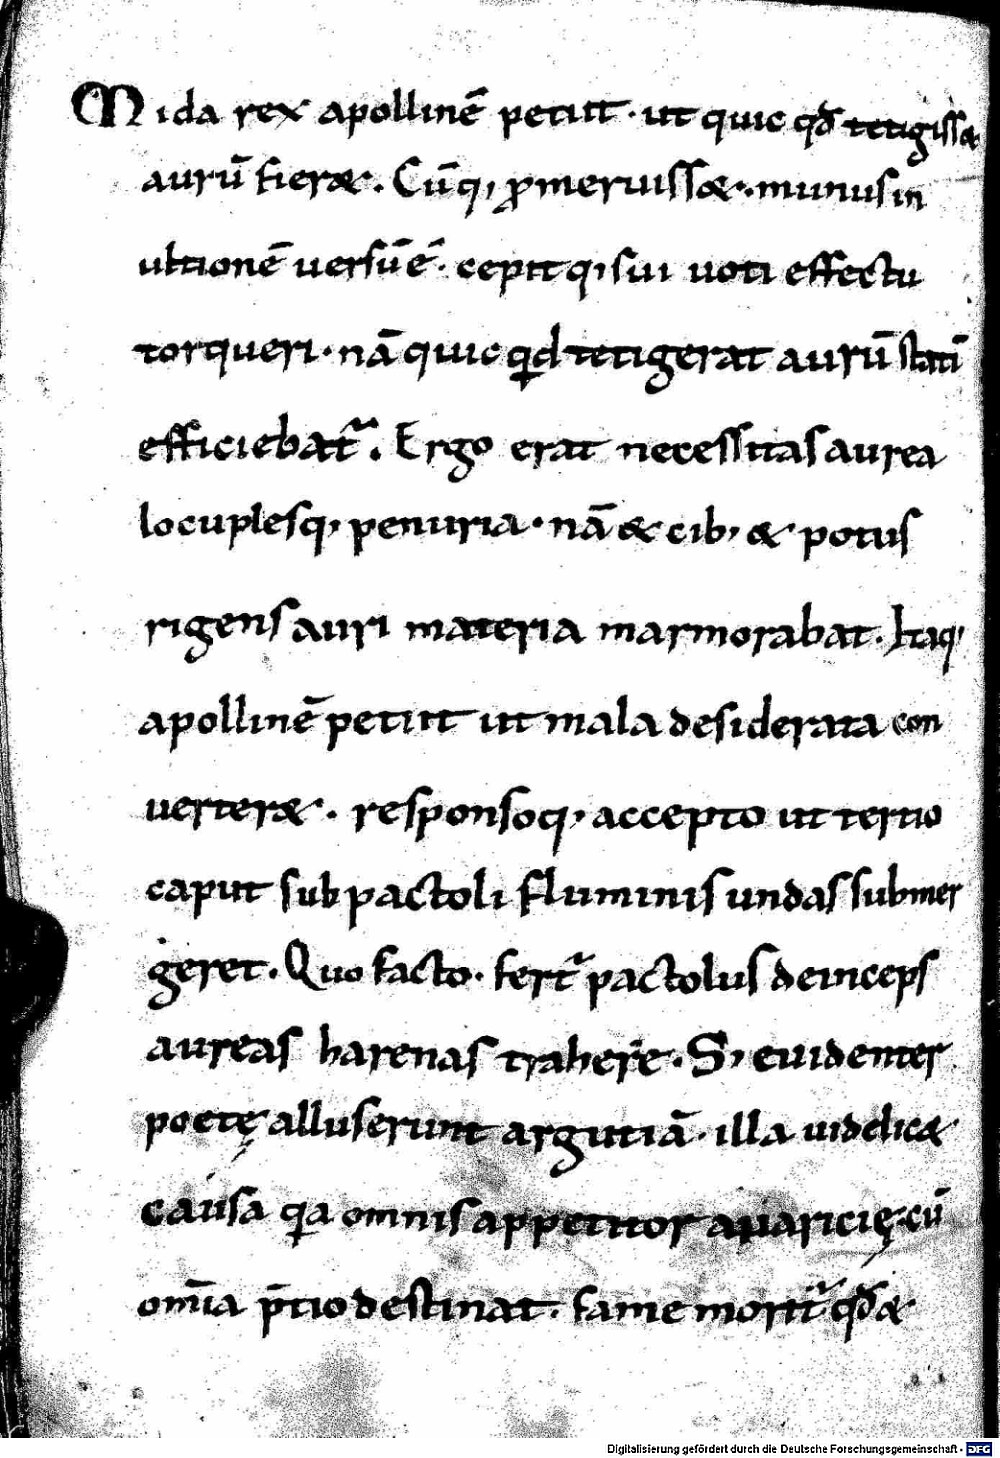 Mida rex apollinē petiit · ut quic qđ tetigiss&
aurū fier& · Cūq; ꝓmeruiss& · munus in
ultionē uersū ē · cepitq; sui uoti effectu
torqueri · nā quic qͥd tetigerat aurū statī
efficiebat᷑ . Ergo erat necessitas aurea
locuplesq; penuria · nā & cib; & potus
rigens auri materia marmorabat · Itaq;
apollinē petiit ut mala desiderata con
uerter& · responsoq; accepto ut tertio
caput sub pactoli fluminis undas submer
geret · Quo facto · fert᷑ pactolus deinceps
aureas harenas trahere · S; euidenter
poetę alluserunt argutiā · illa uidelic&
causa qͥa omnis appetitor auaricię · cū
om̄ia p̄tio destinat · fame morit᷑ qđ &
Digitalisierung gefördert durch die Deutsche Forschungsgemeinschaft - DFG